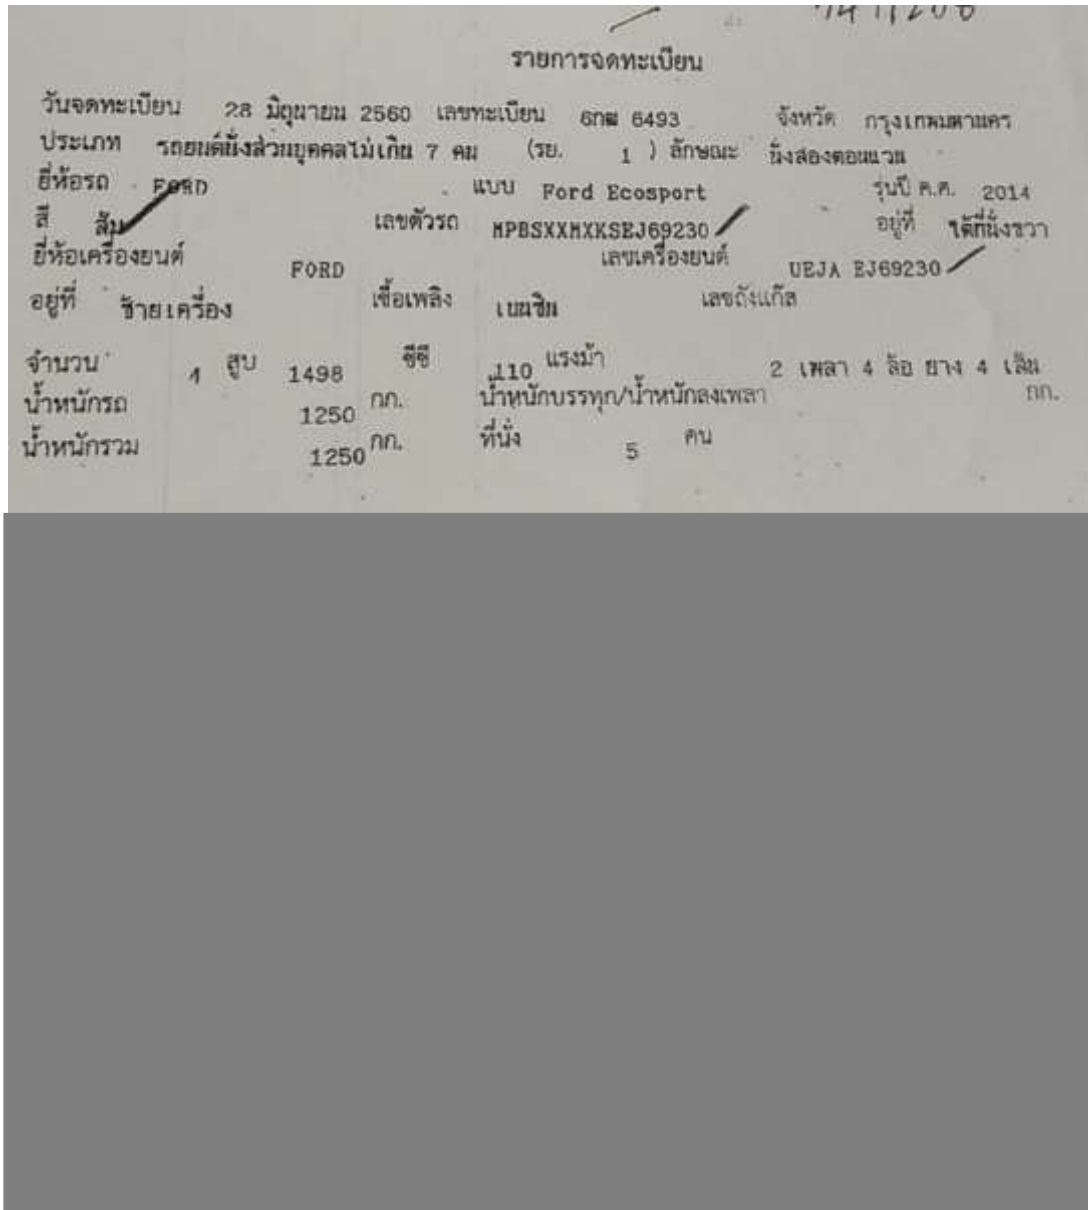 รายการจดทะเบียน
วันจดทะเบียน 28 มิถุนายน 2560 เลขทะเบียน 6กฒ 6493 จังหวัด กรุงเทพมหานคร
ประเภท รถยนต์นั่งส่วนบุคคลไม่เกิน 7 คน (รย. 1 ) ลักษณะ นั่งสองตอนแวน
ยี่ห้อรถ FORD แบบ Ford Ecosport รุ่นปี ค.ศ. 2014
สี ส้ม เลขตัวรถ MPBSXXMXKSEJ69230 อยู่ที่ ใต้ที่นั่งขวา
ยี่ห้อเครื่องยนต์ FORD เลขเครื่องยนต์ UEJA EJ69230
อยู่ที่ ซ้ายเครื่อง เชื้อเพลิง เบนซิน เลขถังแก๊ส
จำนวน 4 สูบ 1498 ซีซี 110 แรงม้า 2 เพลา 4 ล้อ ยาง 4 เส้น
น้ำหนักรถ 1250 กก. น้ำหนักบรรทุก/น้ำหนักลงเพลา กก.
น้ำหนักรวม 1250 กก. ที่นั่ง 5 คน